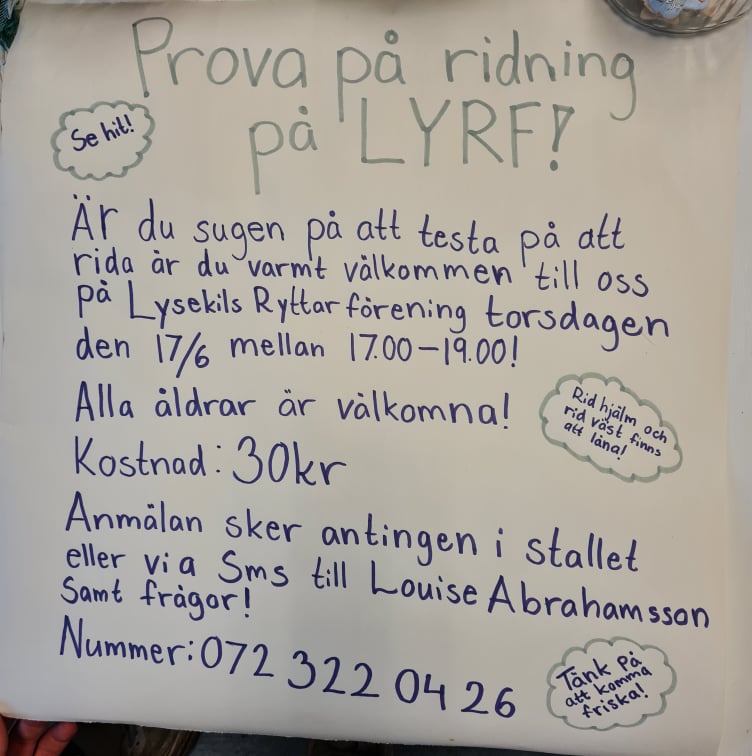 Prova på ridning
på LYRF!
Se hit!
Är du sugen på att testa på att
rida är du varmt välkommen till oss
på Lysekils Ryttarförening torsdagen
den 17/6 mellan 17.00-19.00!
Alla åldrar är välkomna!
Rid hjälm och
rid väst finns
att låna!
Kostnad: 30kr
Anmälan sker antingen i stallet
eller via Sms till Louise Abrahamsson
Samt frågor!
Nummer: 072 322 04 26
Tänk På
att komma
friska!